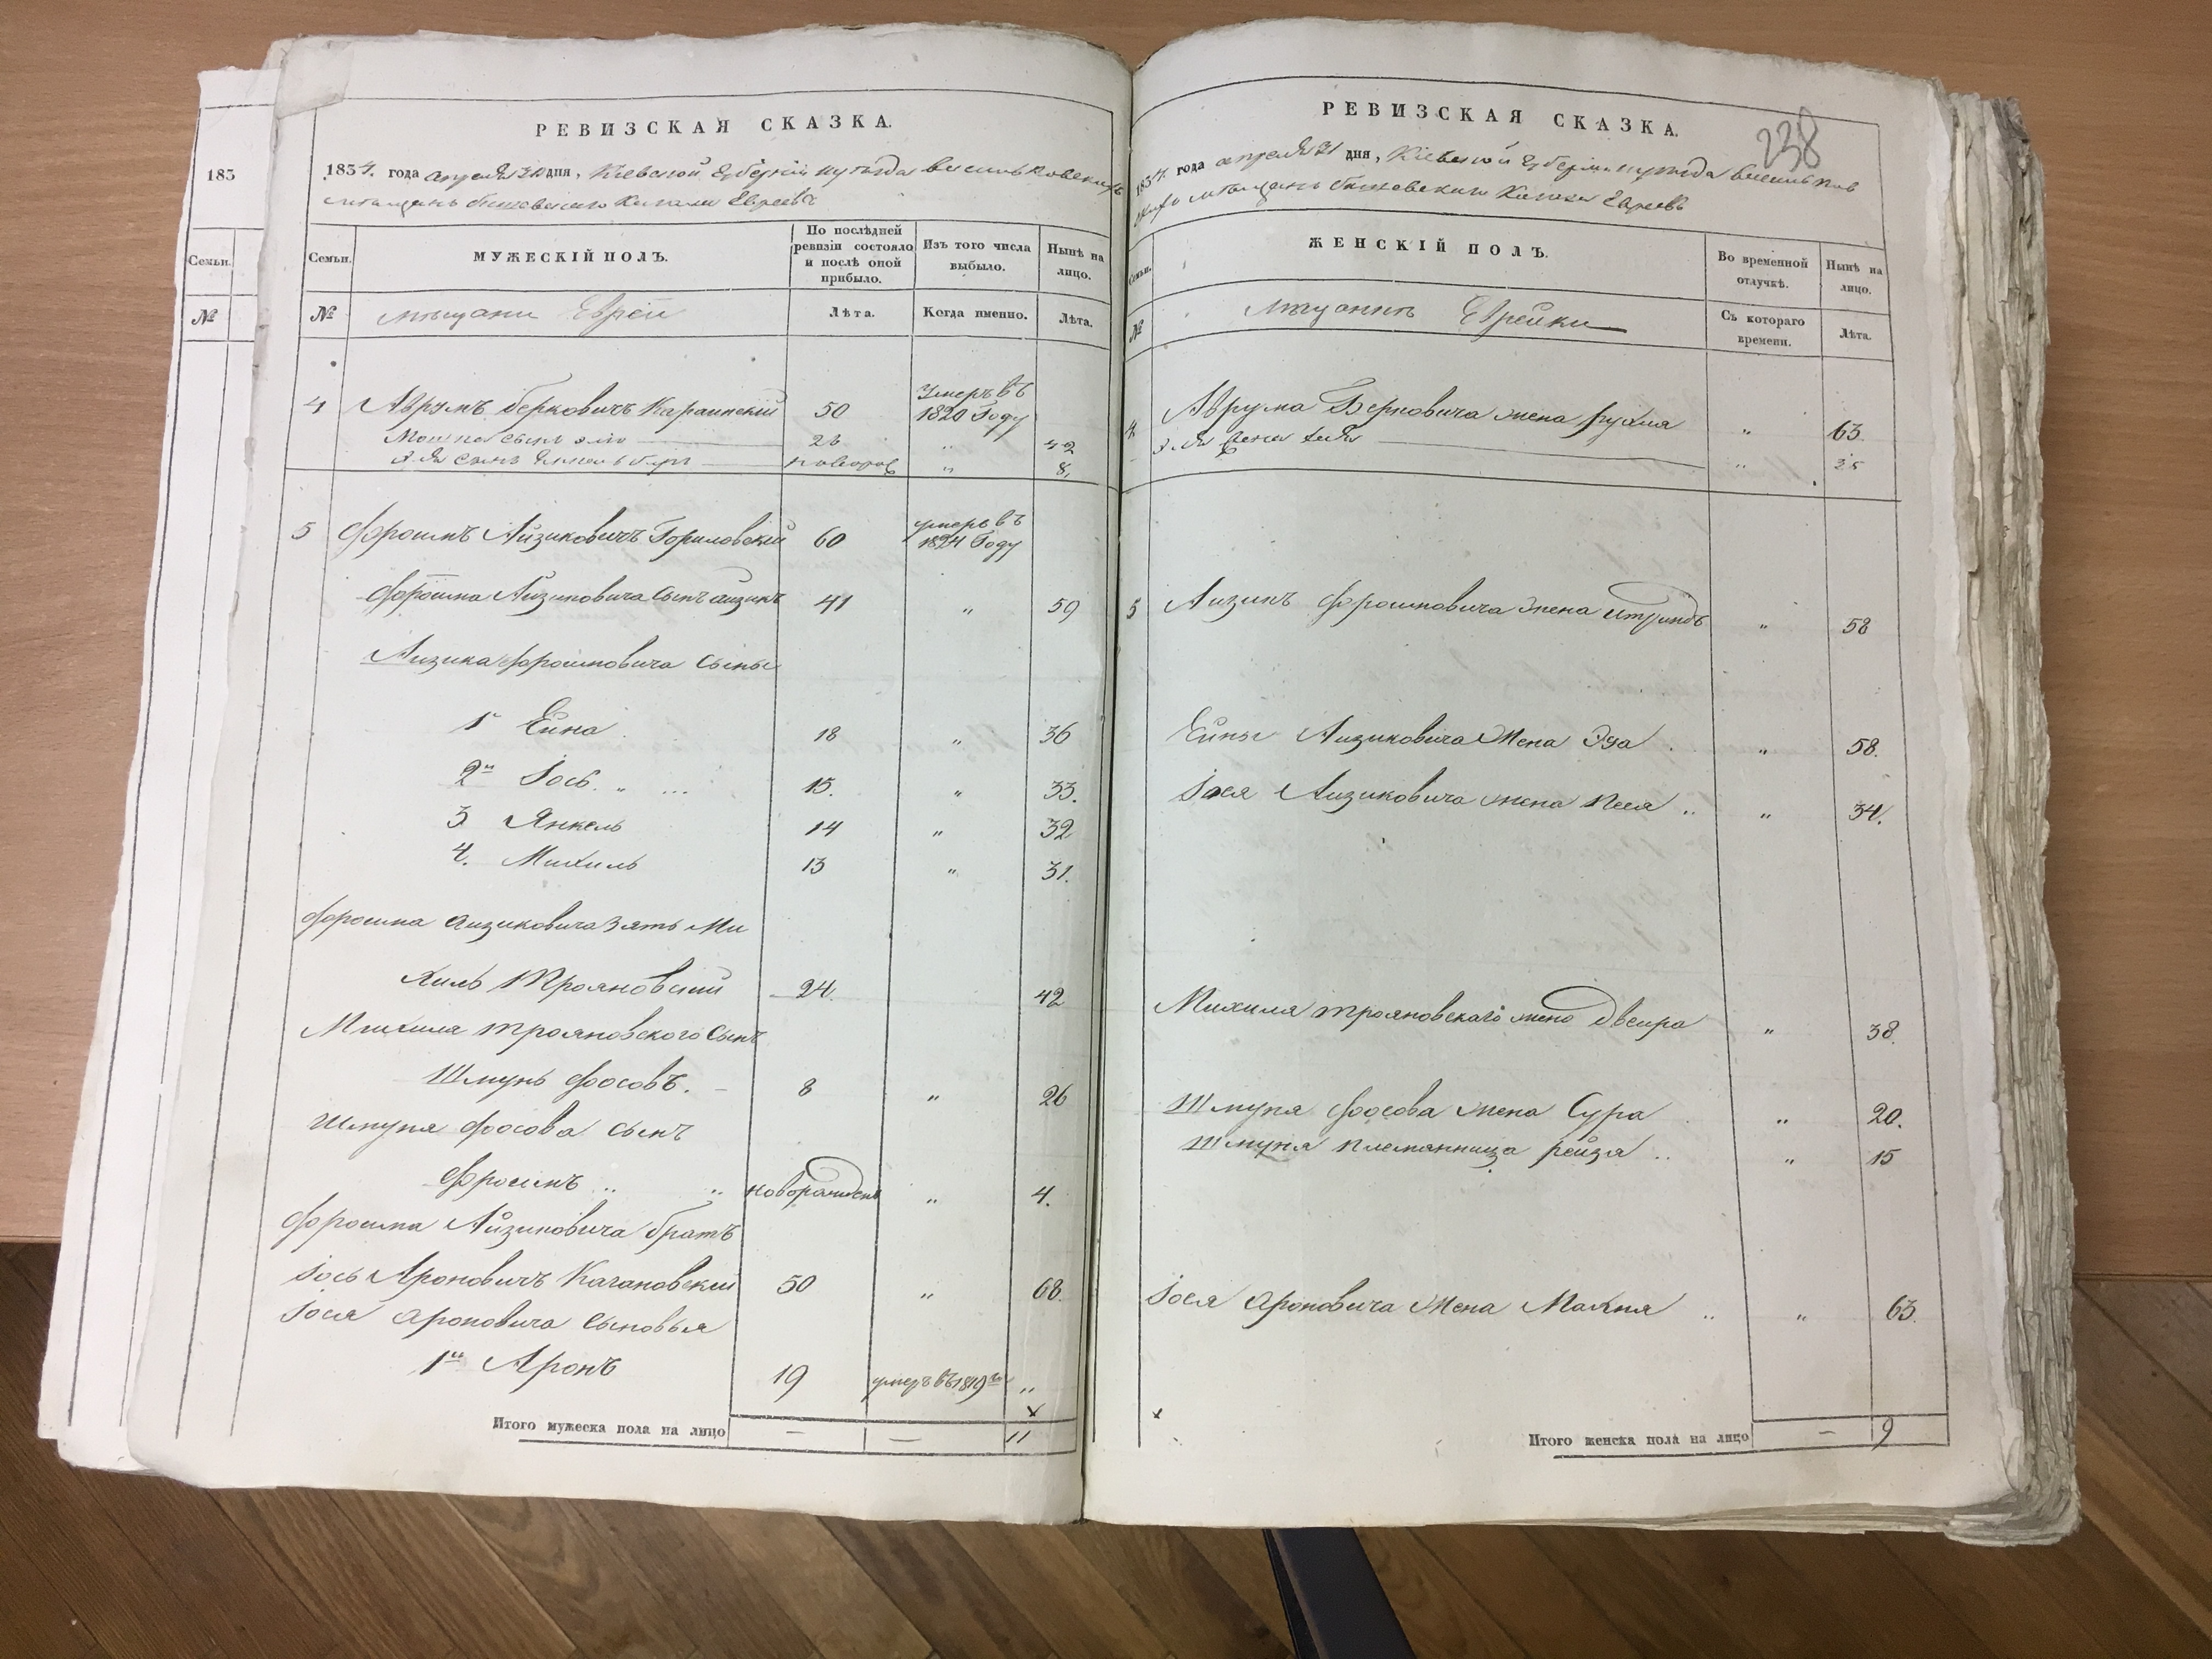 183
Семьи.
№
РЕВИЗСКАЯ СКАЗКА.
1834. года апреля дня, Кіевской Губерніи
мѣщанъ Кагала Евреевъ
Семьи.
МУЖЕСКІЙ ПОЛЪ.
По послѣдней ревизіи состояло и послѣ оной прибыло.
Изъ того числа выбыло.
Нынѣ на лицо.
№
мѣщани Евреи
Лѣта.
Когда именно.
Лѣта.
4 Аврумъ Берковичъ 50 Умеръ въ 1820 Году
Мошко сынъ 42
сынъ 8.
5 Фроимъ Айзиковичъ Гориловскій 60 умеръ въ 1824 Году
Фроима Айзиковича сынъ айзикъ 41 " 59
Аизика Фроимовича сыны
1й Ейна 18 " 36
2й Іось. " ... 15. " 33.
3 Янкель 14 " 32
4. Михиль 13 " 31.
Фроима аизиковича зять Ми
хиль Трояновский 24. 42
Михиля трояновского сынъ
Шмунь Фосовъ. - 8 " 26
Шмуня Фосова сынъ
Фроимъ .. .. новорожденъ " 4.
Фроима Айзиковича братъ
Іось Ароновичъ Кагановский 50 " 68.
Іося ароновича сыновья
1й Аронъ 19 умеръ въ 1819 "
х
Итого мужеска пола на лицо — — 11
238
РЕВИЗСКАЯ СКАЗКА.
1834. года апреля дня, Кіевской Губерніи
мѣщанъ Кагала Евреевъ
Семьи.
ЖЕНСКІЙ ПОЛЪ.
Во временной отлучкѣ.
Нынѣ на лицо.
№
Мещанки Еврейки
Съ котораго времени.
Лѣта.
4 Аврума Берковича жена Рухля " 63.
жена "
5 Аизика Фроимовича жена " 58
Ейны Аизиковича жена Эда . " 58.
Іося Аизиковича жена Песя .. " 34.
Михиля трояновскаго жена Двейра " 38.
Шмуня Фосова жена Сура " 20.
Шмуня племянница рейзя .. " 15
Іося ароновича жена Махня .. " 63.
х
Итого женска пола на лицо — 9